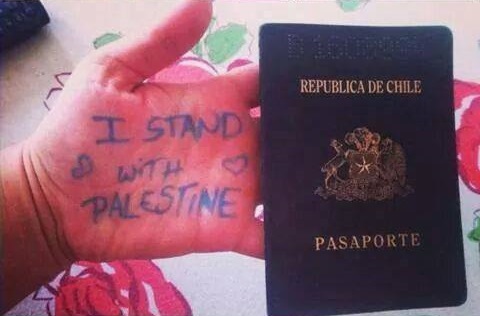 I STAND
WITH
PALESTINE
REPUBLICA DE CHILE
PASAPORTE